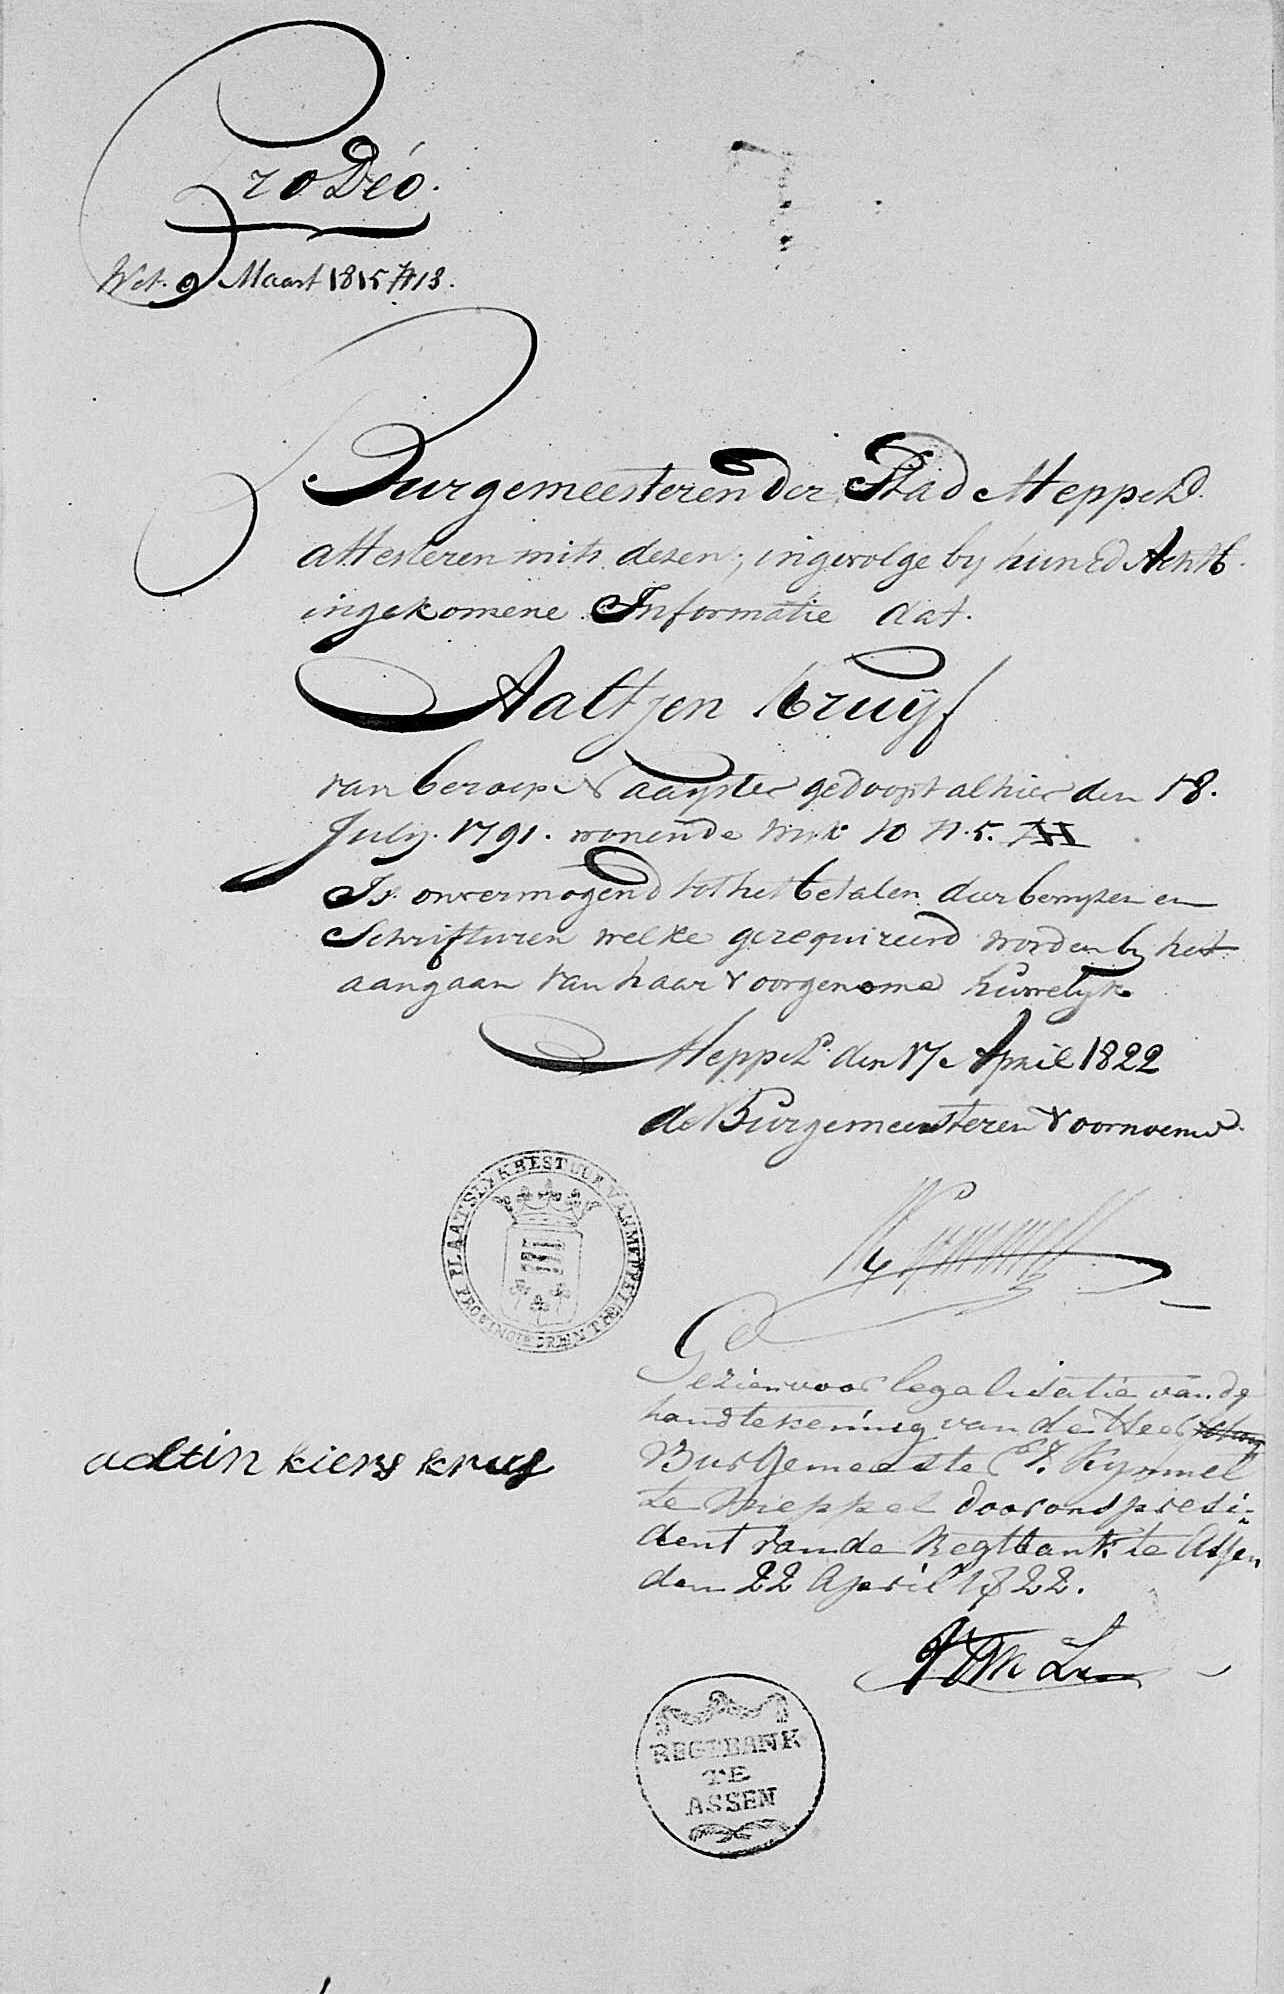 Pro Déo.
Wet. 9 Maart 1815 N 13.
Burgemeesteren der Stad Meppel
attesteren mits dezen, ingevolge by hun Ed Achtb.
ingekomene Informatie dat.
Aaltjen Kruÿf
van beroep Naayster gedoopt alhier den 18.
July. 1791. wonende Wyk 10 N. 5.
Is onvermogend tot het betalen der bewyzen en
Schrifturen welke gerequireerd worden by het
aangaan van haar voorgenome huwelyk
Meppel den 17 April 1822
de Burgemeesteren voornoemd.
PLAATSLYK BESTUUR VAN MEPPEL
PROVINCIE DRENTHE
Gezien voor legalisatie van de
handtekening van de Heer
Burgemeester Kymmel
te Meppel door ons presi-
dent van de Regtbank te Assen
den 22 April 1822.
adtin kiers kruf
REGTBANK
TE
ASSEN